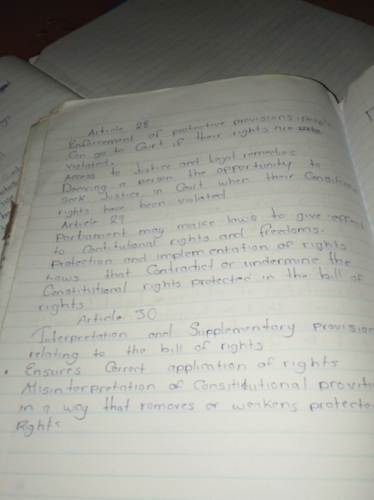 Article 28
Enforcement of protective provisions. people
Can go to Court if their rights are
violated.
Access to Justice and Legal remedies
Denying a person the opportunity to
Seek Justice in Court when their Constitution
rights have been violated
Article 29
Parliament may make laws to give effect
to Constitutional rights and freedoms.
Protection and implementation of rights
Laws that Contradict or undermine the
Constitutional rights protected in the bill of
rights
Article 30
Interpretation and Supplementary provision
relating to the bill of rights
• Ensures Correct application of rights
Misinterpretation of Consititutional provi
in a way that removes or weakens protecte
Rights